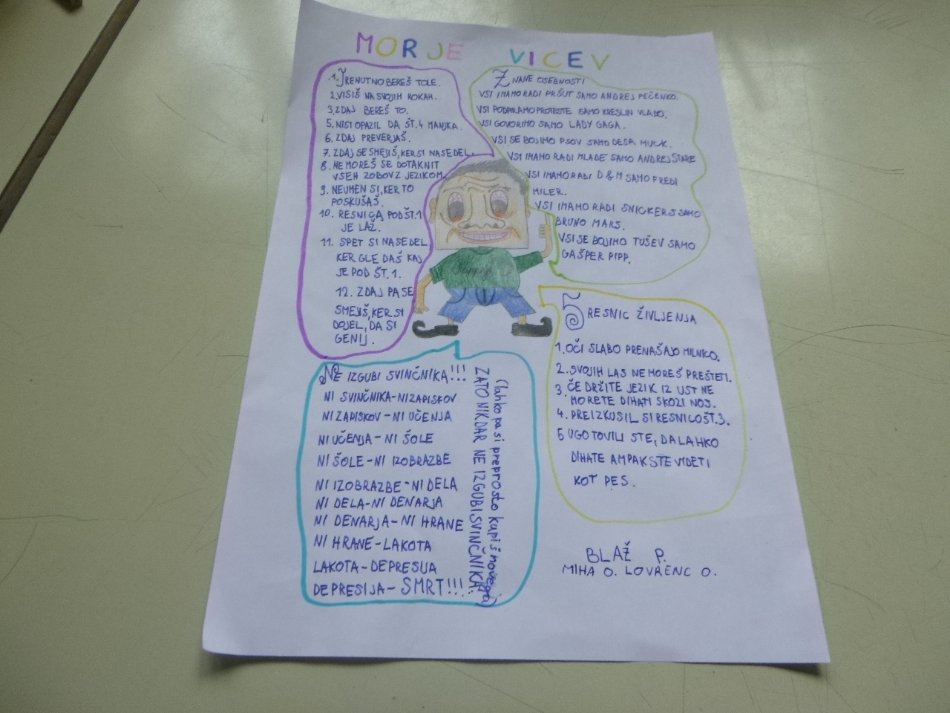 MORJE VICEV
1. TRENUTNO BEREŠ TOLE.
2. VISIŠ NA SVOJIH KOKAH.
3. ZDAJ BEREŠ TO.
5. NISI OPAZIL DA ŠT. 4 MANJKA.
6. ZDAJ PREVERJAŠ.
7. ZDAJ SE SMEJIŠ, KER SI NASEDEL.
8. NE MOREŠ SE DOTAKNIT
VSEH ZOBOV Z JEZIKOM.
9. NEUMEN SI, KER TO
POSKUŠAŠ.
10. RESNIGA POD ŠT. 1
JE LAŽ.
11. SPET SI NASEDEL
KER GLEDAŠ KAJ
JE POD ŠT. 1.
12. ZDAJ PA SE
SMEJIŠ, KER SI
DOJEL, DA SI
GENIJ.
ZNANE OSEBNOSTI
VSI IMAMO RADI PRŠUT SAMO ANDREJ PEČENKO.
VSI PODPIRAMO PROTESTE SAMO KRESLIN VLADO.
VSI GOVORIMO SAMO LADY GAGA.
VSI SE BOJIMO PSOV SAMO DESA MUCK.
VSI IMAMO RADI MLADE SAMO ANDREJ ŠTARE
VSI IMAMO RADI D&M SAMO FREDI
MILER.
VSI IMAMO RADI SNICKERS SAMO
BRUNO MARS.
VSI SE BOJIMO TUŠEV SAMO
GAŠPER PIPP.
5 RESNIC ŽIVLJENJA
1. OČI SLABO PRENAŠAJO MILNKO.
2. SVOJIH LAS NE MOREŠ PREŠTETI.
3 ČE DRŽITE JEZIK IZ UST NE
MORETE DIHATI SKOZI NOS.
4. PREIZKUSIL SI RESNICO ŠT. 3.
5 UGOTOVILI STE, DA LAHKO
DIHATE AMPAK STE VIDETI
KOT PES.
NE IZGUBI SVINČNIKA!!!
NI SVINČNIKA-NI ZAPISKOV
NI ZAPISKOV - NI UČENJA
NI UČENJA - NI ŠOLE
NI ŠOLE - NI IZOBRAZBE
NI IZOBRAZBE - NI DELA
NI DELA - NI DENARJA
NI DENARJA - NI HRANE
NI HRANE - LAKOTA
LAKOTA - DEPRESIJA
DEPRESIJA - SMRT!!!!
ZATO NIKDAR NE IZGUBI SVINČNIKA!
(lahko pa si preprosto kupiš novega)
BLAŽ P.
MIHA O. LOVRENC O.